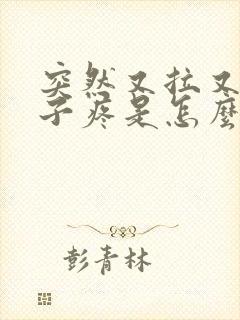 突然又拉又
子疼是怎麼
彭青林